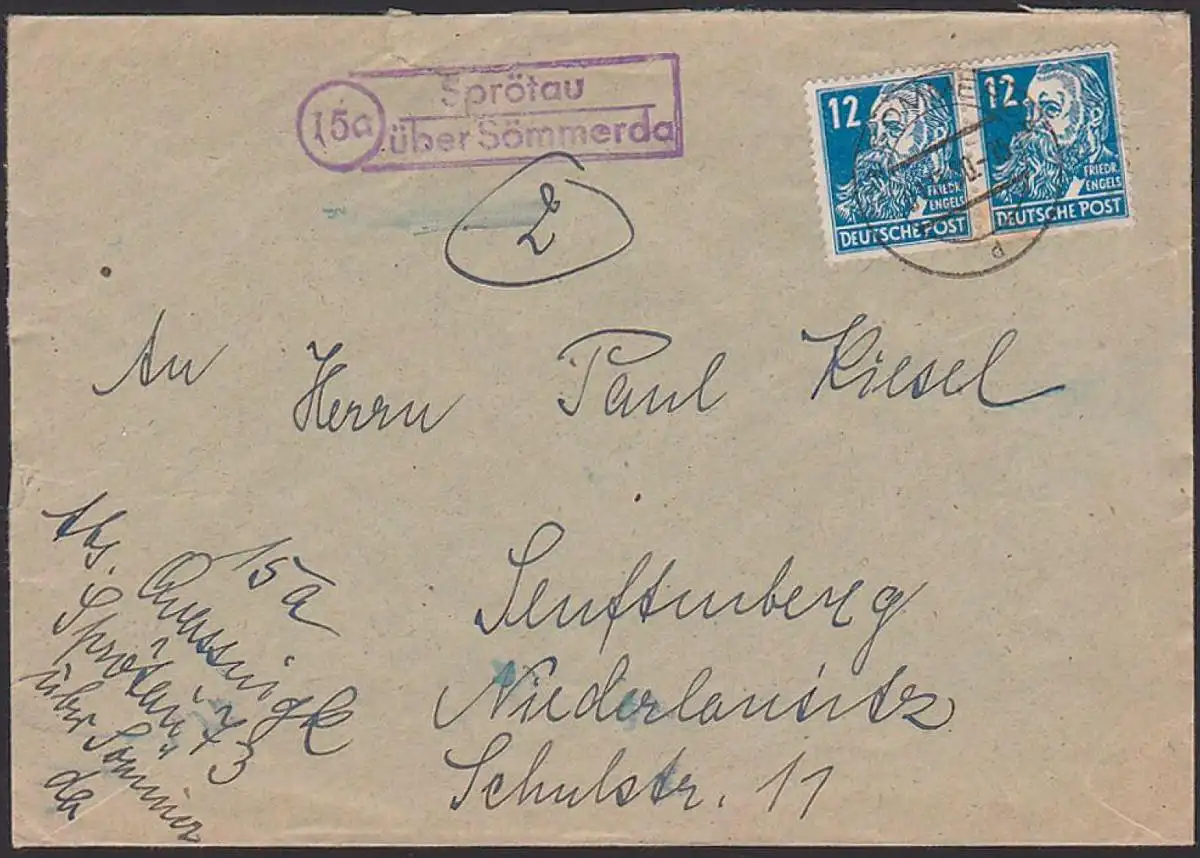 15a
Sprötau
über Sömmerda
12
FRIEDR.
ENGELS
DEUTSCHE POST
12
FRIEDR.
ENGELS
DEUTSCHE POST
d
An Herrn Paul Kiesel
Senftenberg
Niederlausitz
Schulstr. 11
15a
Abs.
Sprötau 73
über Sömmer
da